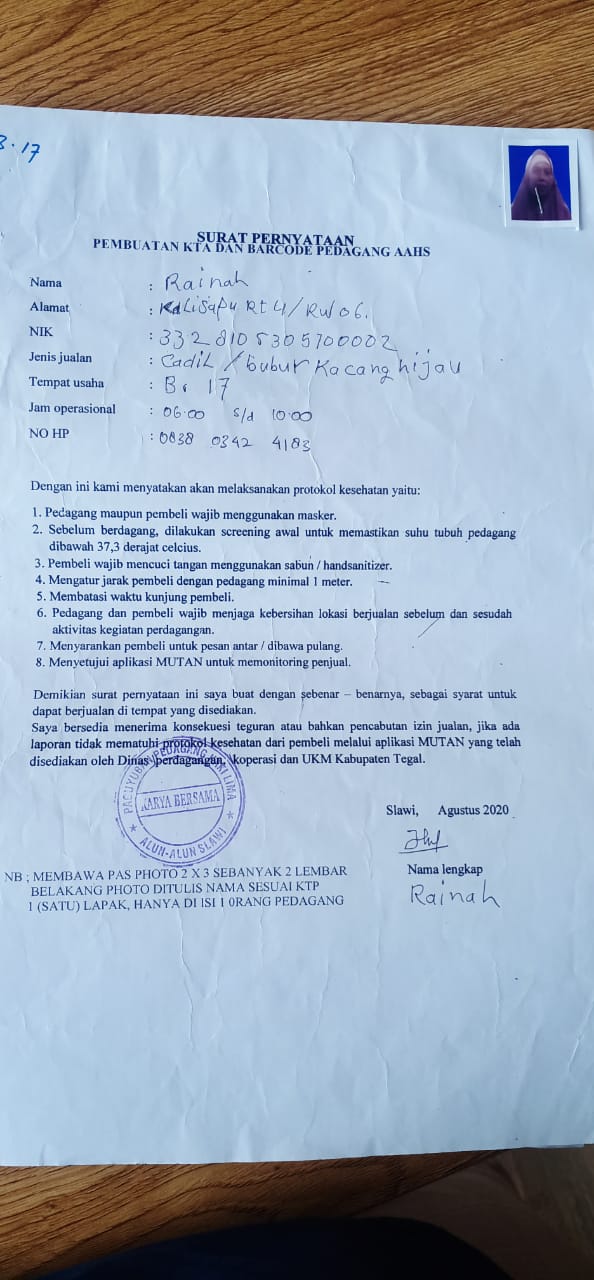 B.17
SURAT PERNYATAAN
PEMBUATAN KTA DAN BARCODE PEDAGANG AAHS
Nama : Rainah
Alamat : Kalisapu Rt 4/Rw 06.
NIK : 3328105305700002
Jenis jualan : Cadil / bubur Kacang hijau
Tempat usaha : B. 17
Jam operasional : 06.00 s/d 10.00
NO HP : 0838 0342 4183
Dengan ini kami menyatakan akan melaksanakan protokol kesehatan yaitu:
1. Pedagang maupun pembeli wajib menggunakan masker.
2. Sebelum berdagang, dilakukan screening awal untuk memastikan suhu tubuh pedagang
dibawah 37,3 derajat celcius.
3. Pembeli wajib mencuci tangan menggunakan sabun / handsanitizer.
4. Mengatur jarak pembeli dengan pedagang minimal 1 meter.
5. Membatasi waktu kunjung pembeli.
6. Pedagang dan pembeli wajib menjaga kebersihan lokasi berjualan sebelum dan sesudah
aktivitas kegiatan perdagangan.
7. Menyarankan pembeli untuk pesan antar / dibawa pulang.
8. Menyetujui aplikasi MUTAN untuk memonitoring penjual.
Demikian surat pernyataan ini saya buat dengan sebenar – benarnya, sebagai syarat untuk
dapat berjualan di tempat yang disediakan.
Saya bersedia menerima konsekuesi teguran atau bahkan pencabutan izin jualan, jika ada
laporan tidak mematuhi protokol kesehatan dari pembeli melalui aplikasi MUTAN yang telah
disediakan oleh Dinas perdagangan, koperasi dan UKM Kabupaten Tegal.
PAGUYUBAN PEDAGANG KAKI LIMA
KARYA BERSAMA
ALUN-ALUN SLAWI
Slawi, Agustus 2020
Nama lengkap
Rainah
NB ; MEMBAWA PAS PHOTO 2 X 3 SEBANYAK 2 LEMBAR
BELAKANG PHOTO DITULIS NAMA SESUAI KTP
1 (SATU) LAPAK, HANYA DI ISI 1 0RANG PEDAGANG